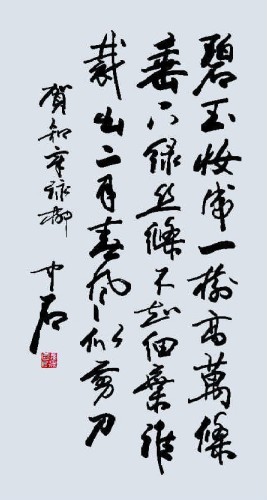 碧玉妝成一樹高萬條
垂下綠丝絛不知細葉誰
裁出二月春風似剪刀
賀知章詠柳
中石